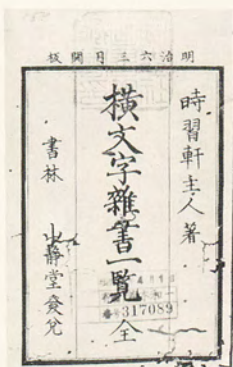 明治六三月開板
時習軒主人著
橫文字雜書一覽 全
書林 山靜堂發兌
317089